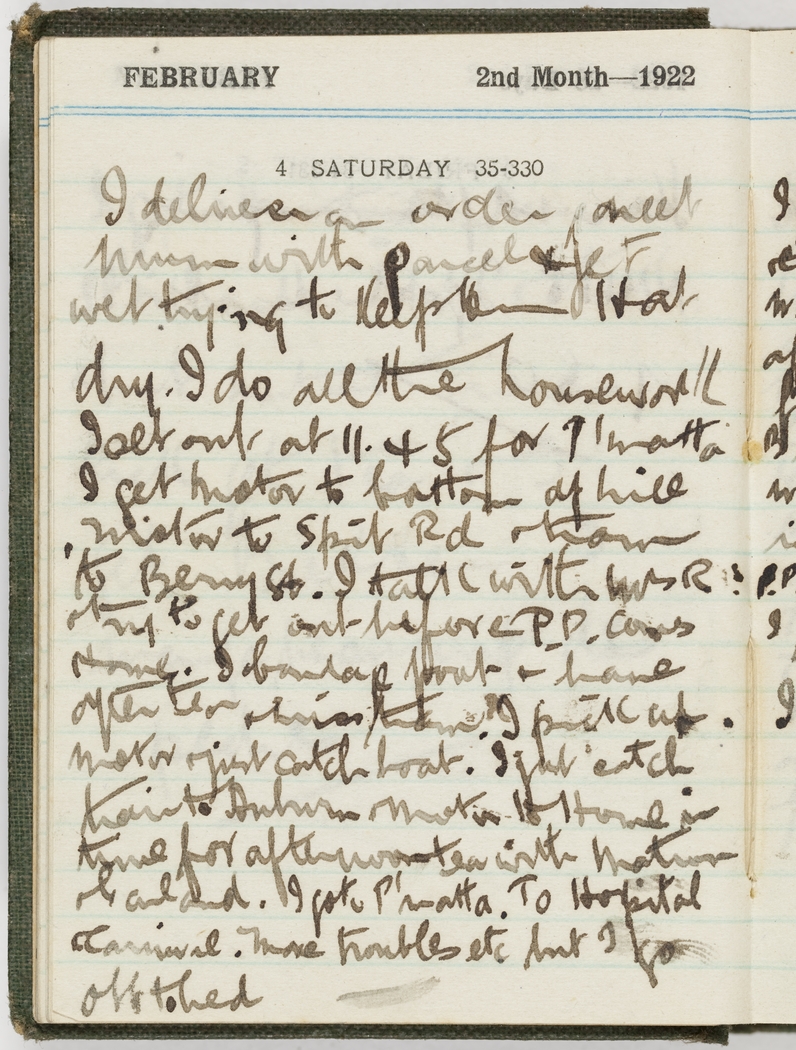 FEBRUARY 2nd Month—1922
4 SATURDAY 35-330
I deliver an order meet
Mum with parcels & get
wet trying to keep them Hat
dry. I do all the housework
I set out at 11.45 for P'matta
I get motor to bottom of hill
motor to Spit Rd & tram
to Berry St. I talk with Mrs R
& try to get out before P.P. comes
Home. I bandage foot & have
after tea & miss tram. I pick up
motor & just catch boat. I just catch
train to Auburn & motor to Home in
time for afternoon tea with Matron
I go to P'matta. To Hospital
Carnival. More troubles etc but I go
off to bed
I
I
I